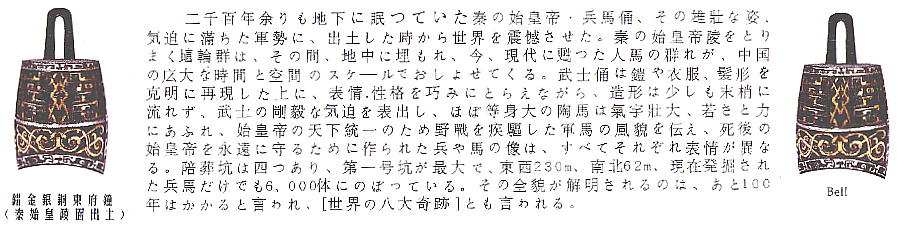 二千百年余りも地下に眠つていた秦の始皇帝・兵馬俑、その雄壯な姿、
気迫に満ちた軍勢に、出土した時から世界を震憾させた。秦の始皇帝陵をとり
まく埴輪群は、その間、地中に埋もれ、今、現代に甦つた人馬の群れが、中国
の広大な時間と空間のスケールでおしよせてくる。武士俑は鎧や衣服、髪形を
克明に再現した上に、表情.性格を巧みにとらえながら、造形は少しも末梢に
流れず、武士の剛毅な気迫を表出し、ほぼ等身大の陶馬は氣宇壯大、若さと力
にあふれ、始皇帝の天下統一のため野戰を疾驅した軍馬の風貌を伝え、死後の
始皇帝を永遠に守るために作られた兵や馬の像は、すべてそれぞれ表情が異な
る。陪葬坑は四つあり、第一号坑が最大で、東西230m、南北62m、現在発掘され
た兵馬だけでも6,000体にのぼつている。その全貌が解明されるのは、あと100
年はかかると言われ、[世界の八大奇跡]とも言われる。
錯金銀銅東府鐘
(秦始皇陵園出土)
Bell